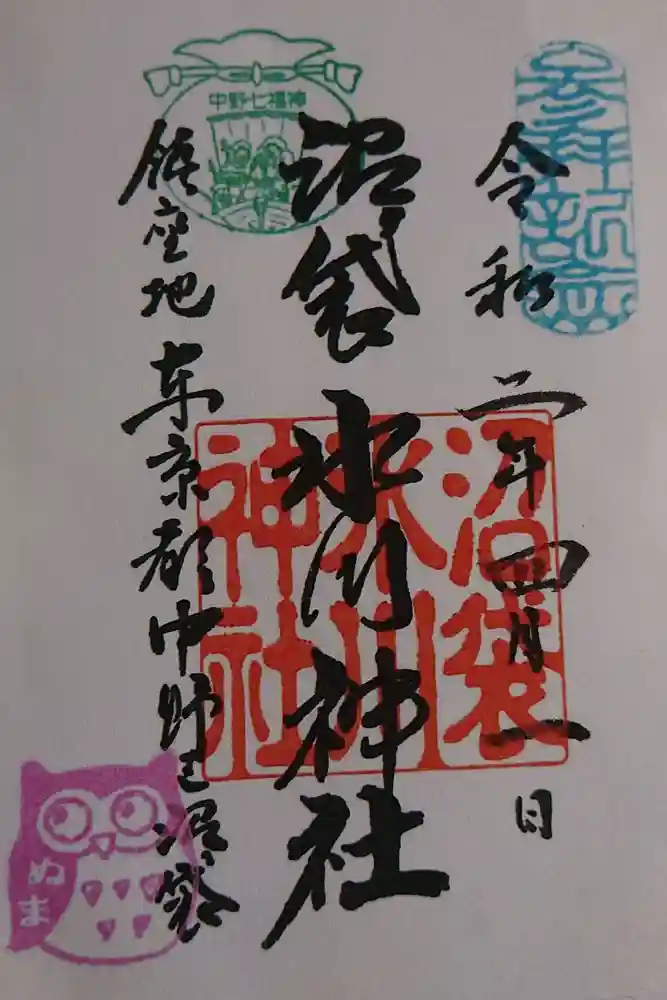 参拝記念
令和二年四月一日
沼袋氷川神社
沼袋
氷川
神社
中野七福神
鎮座地東京都中野区沼袋
ぬま